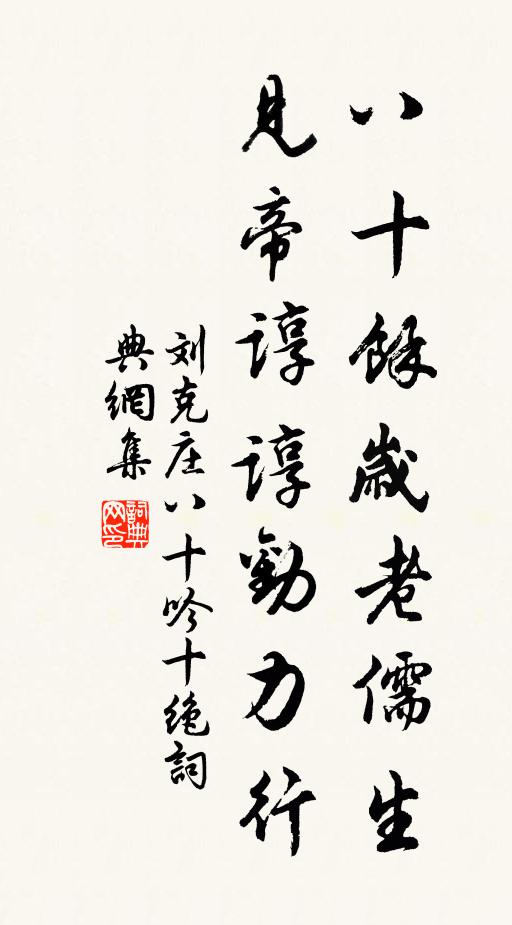 八十餘歲老儒生
見帝諄諄勸力行
刘克庄八十吟十绝詞
典網集
詞典网印